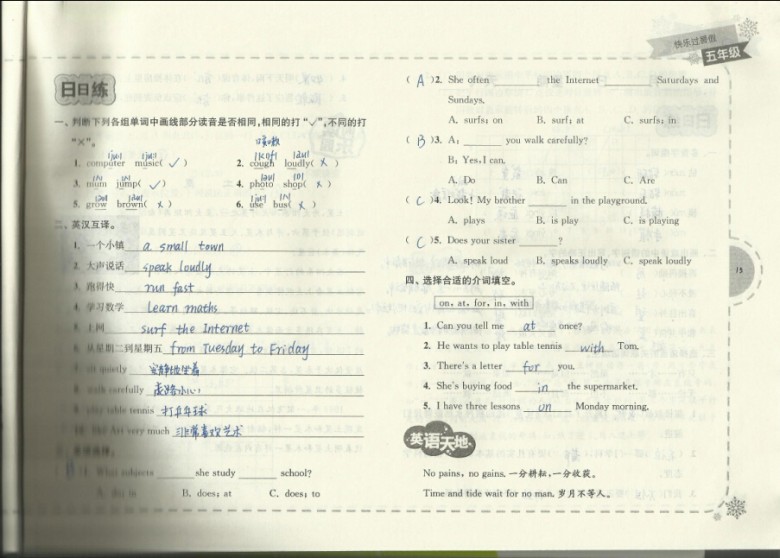 快乐过暑假
五年级
日日练
一、判断下列各组单词中画线部分读音是否相同,相同的打“✓”,不同的打
“×”。
1. computer music( ✓ )
2. cough loudly( × )
3. mum jump( ✓ )
4. photo shop( × )
5. grow brown( × )
6. use bus( × )
二、英汉互译。
1. 一个小镇 a small town
2. 大声说话 speak loudly
3. 跑得快 run fast
4. 学习数学 learn maths
5. 上网 surf the Internet
6. 从星期二到星期五 from Tuesday to Friday
sit quietly 安静地坐着
walk carefully 走路小心
play table tennis 打乒乓球
very much 非常喜欢艺术
1. What subjects ______ she study ______ school?
B. does; at C. does; to
( A )2. She often ______ the Internet ______ Saturdays and
Sundays.
A. surfs; on B. surf; at C. surfs; in
( B )3. A: ______ you walk carefully?
B: Yes, I can.
A. Do B. Can C. Are
( C )4. Look! My brother ______ in the playground.
A. plays B. is play C. is playing
( C )5. Does your sister ______?
A. speak loud B. speaks loudly C. speak loudly
四、选择合适的介词填空。
on, at, for, in, with
1. Can you tell me at once?
2. He wants to play table tennis with Tom.
3. There's a letter for you.
4. She's buying food in the supermarket.
5. I have three lessons on Monday morning.
英语天地
No pains, no gains. 一分耕耘,一分收获。
Time and tide wait for no man. 岁月不等人。